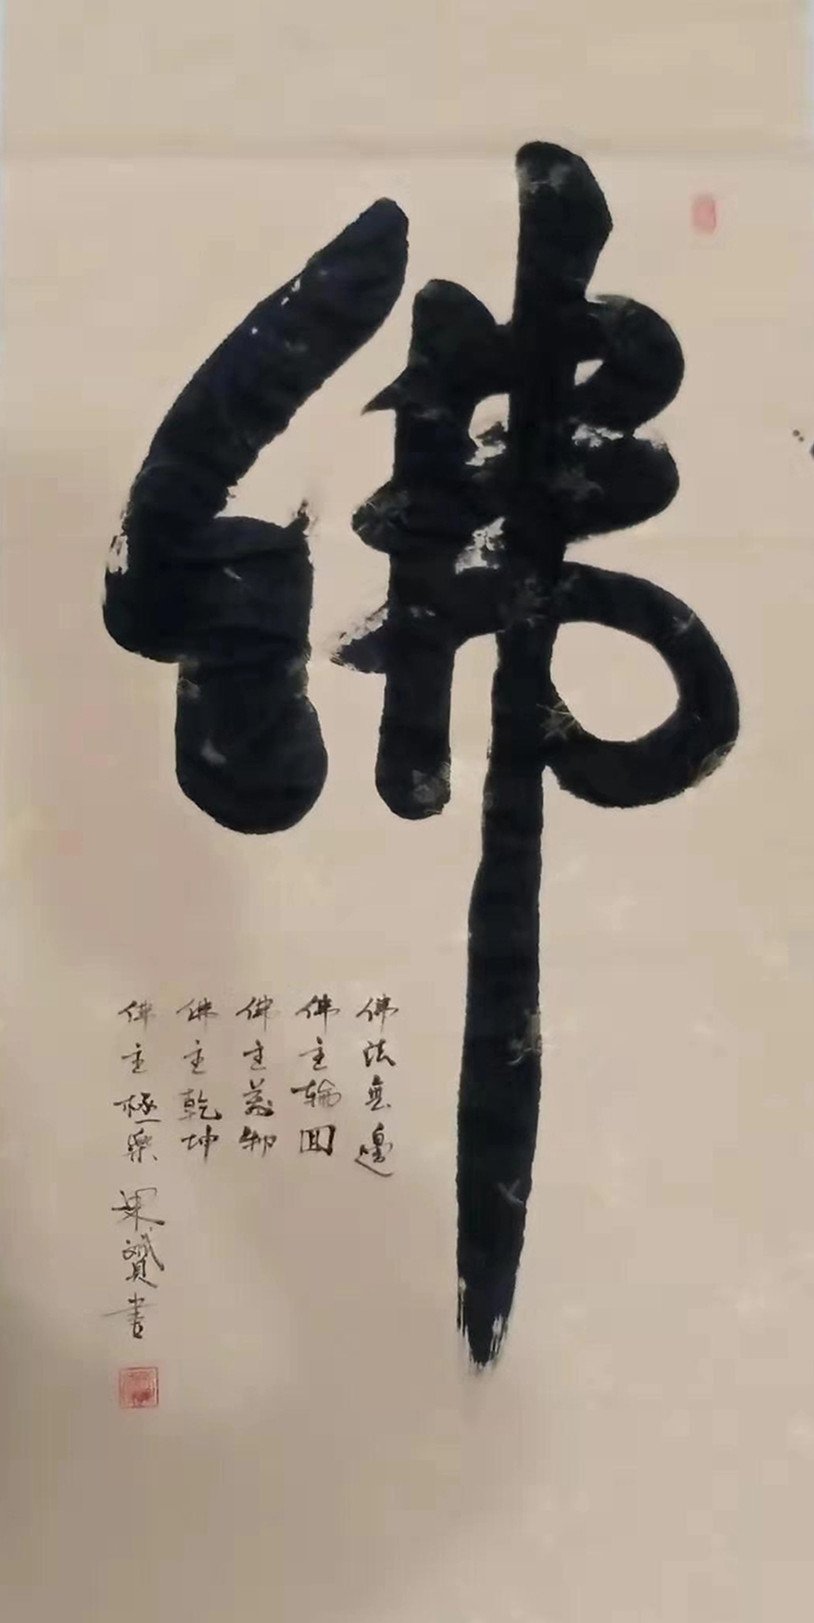 佛
佛法無邊
佛主輪回
佛主萬物
佛主乾坤
佛主極樂
書